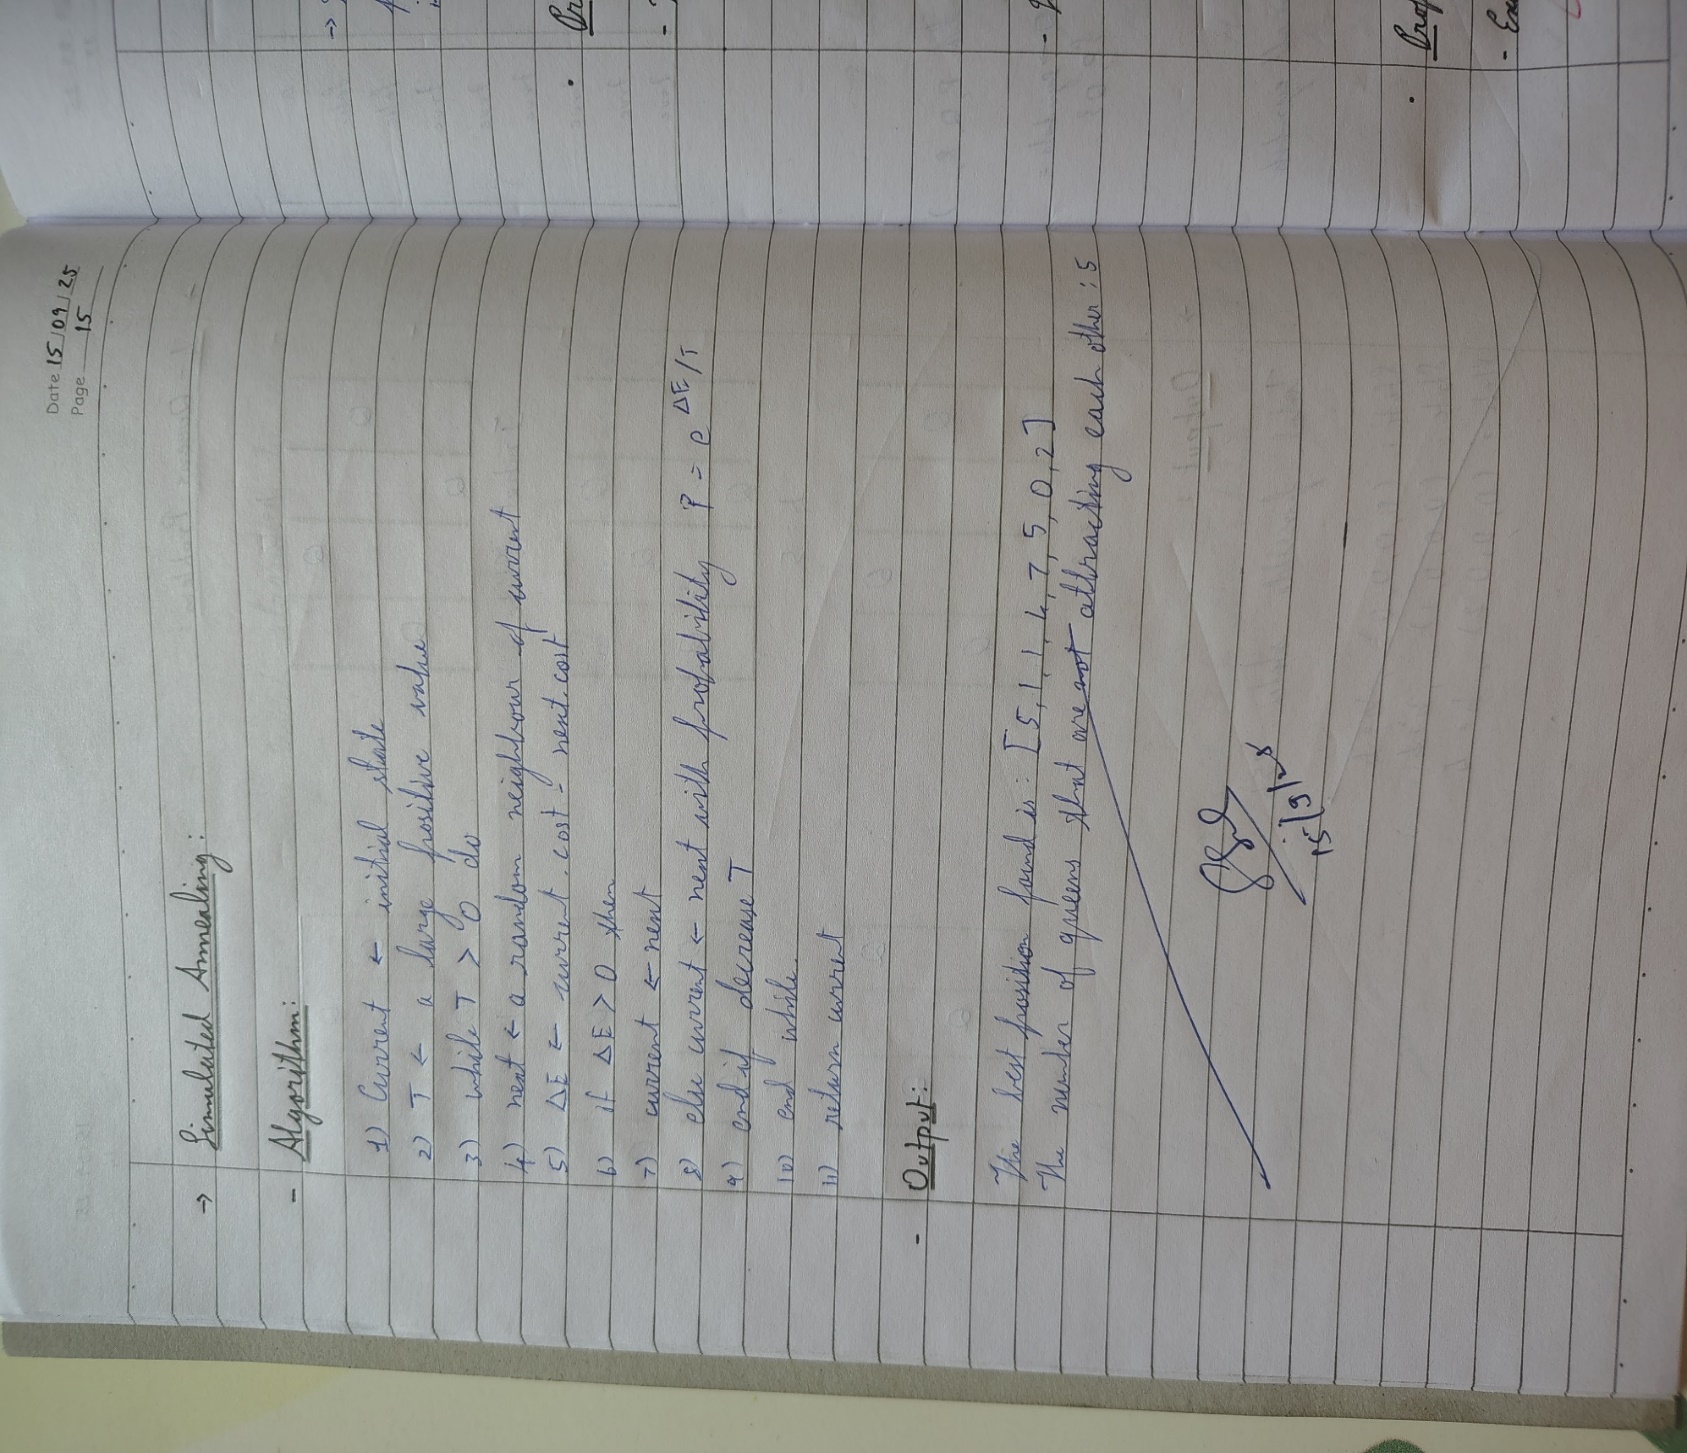 Date 15/09/25
Page 15
→ Simulated Annealing:
- Algorithm:
1) Current ← initial state
2) T ← a large positive value
3) while T > 0 do
4) next ← a random neighbour of current
5) ΔE ← current.cost - next.cost
6) if ΔE > 0 then
7) current ← next
8) else current ← next with probability P = e^ΔE/T
9) end if decrease T
10) end while.
11) return current
- Output:
The best position found is: [5, 1, 1, 4, 7, 5, 0, 2]
The number of queens that are not attracking each other: 5
15/9/25